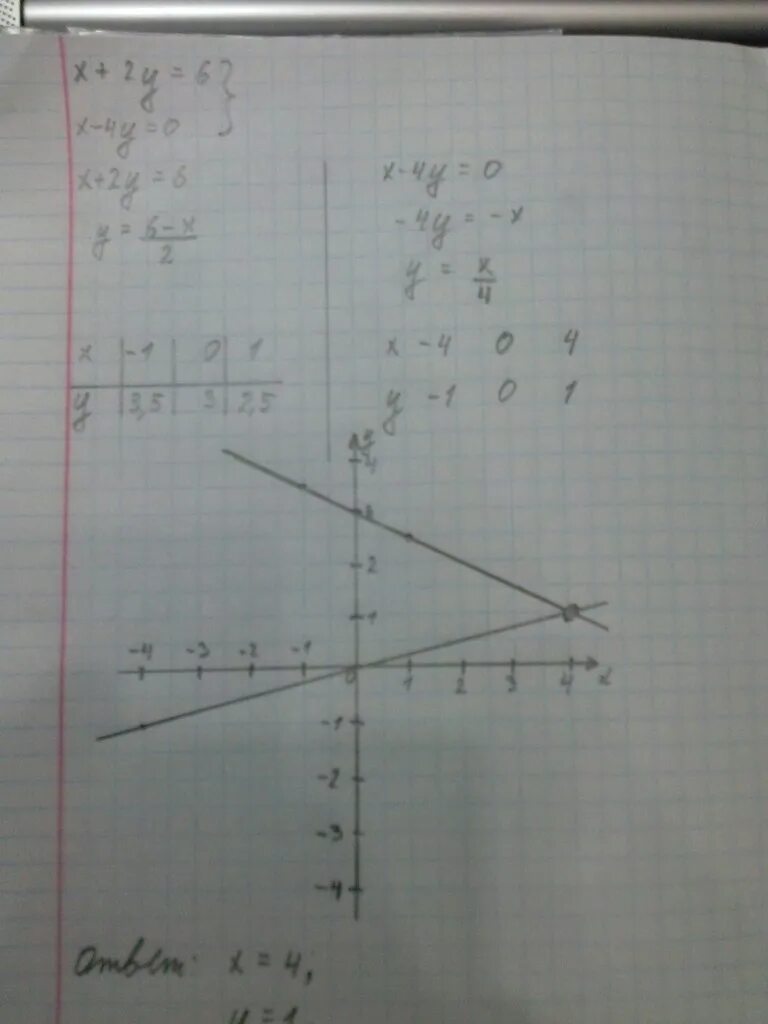 x + 2y = 6 }
x - 4y = 0
x + 2y = 6
y = 6-x / 2
x | -1 | 0 | 1
y | 3,5 | 3 | 2,5
x - 4y = 0
-4y = -x
y = x / 4
x -4 0 4
y -1 0 1
y
4
3
2
1
-4 -3 -2 -1 0 1 2 3 4 x
-1
-2
-3
-4
Ответ: x = 4;
y = 1